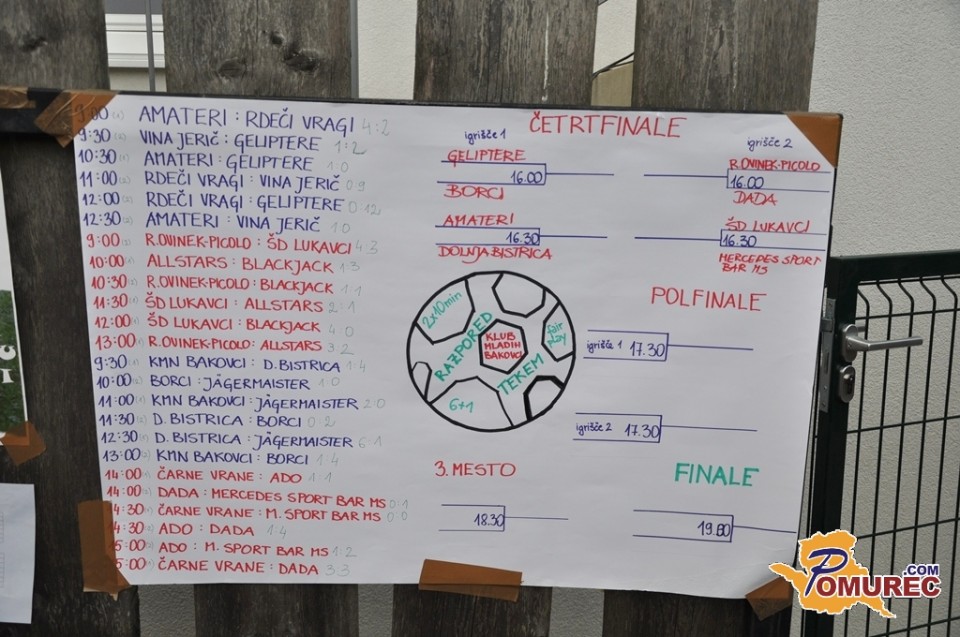 9:00 AMATERI : RDEČI VRAGI 4:2
9:30 VINA JERIČ : GELIPTERE 1:2
10:30 AMATERI : GELIPTERE 1:0
11:00 RDEČI VRAGI : VINA JERIČ 0:9
12:00 RDEČI VRAGI : GELIPTERE 0:12
12:30 AMATERI : VINA JERIČ 1:0
9:00 R.OVINEK-PICOLO : ŠD LUKAVCI 4:3
10:00 ALLSTARS : BLACKJACK 1:3
10:30 R.OVINEK-PICOLO : BLACKJACK 1:1
11:30 ŠD LUKAVCI : ALLSTARS 2:1
12:00 ŠD LUKAVCI : BLACKJACK 4:0
13:00 R.OVINEK-PICOLO : ALLSTARS 3:2
9:30 KMN BAKOVCI : D.BISTRICA 1:4
10:00 BORCI : JÄGERMAISTER 1:0
11:00 KMN BAKOVCI : JÄGERMAISTER 2:0
11:30 D. BISTRICA : BORCI 0:2
12:30 D. BISTRICA : JÄGERMAISTER 6:1
13:00 KMN BAKOVCI : BORCI 1:4
14:00 ČARNE VRANE : ADO 1:1
14:00 DADA : MERCEDES SPORT BAR MS 0:1
14:30 ČARNE VRANE : M. SPORT BAR MS 0:0
14:30 ADO : DADA 1:4
15:00 ADO : M. SPORT BAR MS 1:2
15:00 ČARNE VRANE : DADA 3:3
ČETRTFINALE
igrišče 1
GELIPTERE
16.00
BORCI
AMATERI
16.30
DOLNJA BISTRICA
igrišče 2
R.OVINEK-PICOLO
16.00
DADA
ŠD LUKAVCI
16.30
MERCEDES SPORT
BAR MS
2x10min
RAZPORED
TEKEM
KLUB
MLADIH
BAKOVCI
fair
play
6+1
POLFINALE
igrišče 1 17.30
igrišče 2 17.30
3. MESTO
18.30
FINALE
19.00
POMUREC.COM